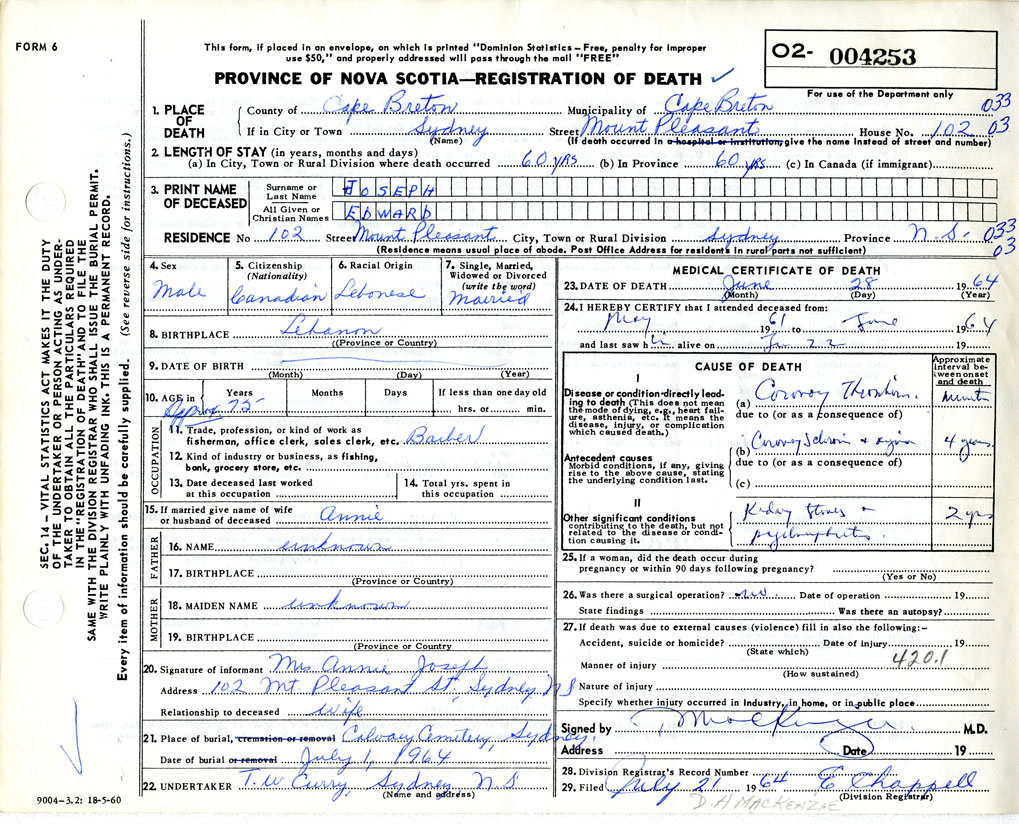 FORM 6
This form, if placed in an envelope, on which is printed "Dominion Statistics – Free, penalty for improper
use $50," and properly addressed will pass through the mail "FREE"
PROVINCE OF NOVA SCOTIA—REGISTRATION OF DEATH ✓
O2- 004253
For use of the Department only
1. PLACE OF DEATH
County of Cape Breton Municipality of Cape Breton 033
If in City or Town Sydney Street Mount Pleasant House No. 102 03
(Name) (If death occurred in a hospital or institution, give the name instead of street and number)
2. LENGTH OF STAY (in years, months and days)
(a) In City, Town or Rural Division where death occurred 60 yrs (b) In Province 60 yrs (c) In Canada (if immigrant)
3. PRINT NAME OF DECEASED
Surname or Last Name JOSEPH
All Given or Christian Names EDWARD
RESIDENCE No 102 Street Mount Pleasant City, Town or Rural Division Sydney Province N.S. 033
(Residence means usual place of abode. Post Office Address for residents in rural parts not sufficient) 03
4. Sex
Male
5. Citizenship
(Nationality)
Canadian
6. Racial Origin
Lebonese
7. Single, Married,
Widowed or Divorced
(write the word)
Married
8. BIRTHPLACE Lebanon
(Province or Country)
9. DATE OF BIRTH
(Month) (Day) (Year)
10. AGE in Years Months Days If less than one day old
Approx. 75 hrs. or min.
OCCUPATION
11. Trade, profession, or kind of work as
fisherman, office clerk, sales clerk, etc. Barber
12. Kind of industry or business, as fishing,
bank, grocery store, etc.
13. Date deceased last worked
at this occupation
14. Total yrs. spent in
this occupation
15. If married give name of wife
or husband of deceased Annie
FATHER
16. NAME unknown
17. BIRTHPLACE
(Province or Country)
MOTHER
18. MAIDEN NAME unknown
19. BIRTHPLACE
(Province or Country)
20. Signature of informant Mrs Annie Joseph
Address 102 Mt. Pleasant St., Sydney, N S
Relationship to deceased wife
21. Place of burial, cremation or removal Calvary Cemetery, Sydney.
Date of burial or removal July 1, 1964
22. UNDERTAKER T. W Curry, Sydney N. S
(Name and address)
MEDICAL CERTIFICATE OF DEATH
23. DATE OF DEATH June 28 1964
(Month) (Day) (Year)
24. I HEREBY CERTIFY that I attended deceased from:
May 1961 to June 1964
and last saw h alive on 22 19
CAUSE OF DEATH
Approximate
interval be-
tween onset
and death
I
Disease or condition directly lead-
ing to death (This does not mean
the mode of dying, e.g., heart fail-
ure, asthenia, etc. It means the
disease, injury, or complication
which caused death.)
(a)
due to (or as a consequence of)
Antecedent causes
Morbid conditions, if any, giving
rise to the above cause, stating
the underlying condition last.
(b) 4 years
due to (or as a consequence of)
(c)
II
Other significant conditions
contributing to the death, but not
related to the disease or condi-
tion causing it.
Kidney Stones 2 yrs
25. If a woman, did the death occur during
pregnancy or within 90 days following pregnancy?
(Yes or No)
26. Was there a surgical operation? no Date of operation 19
State findings Was there an autopsy?
27. If death was due to external causes (violence) fill in also the following:–
Accident, suicide or homicide? Date of injury 19
(State which)
Manner of injury 420.1
(How sustained)
Nature of injury
Specify whether injury occurred in industry, in home, or in public place
Signed by MacKenzie M.D.
Address Date 19
28. Division Registrar's Record Number
29. Filed July 21 1964 E Chappell
(Division Registrar)
D A MACKENZIE
SEC. 14 – VITAL STATISTICS ACT MAKES IT THE DUTY
OF THE UNDERTAKER OR PERSON ACTING AS UNDER-
TAKER TO OBTAIN ALL THE PARTICULARS REQUIRED
IN THE "REGISTRATION OF DEATH" AND TO FILE THE
SAME WITH THE DIVISION REGISTRAR WHO SHALL ISSUE THE BURIAL PERMIT.
WRITE PLAINLY WITH UNFADING INK. THIS IS A PERMANENT RECORD.
Every item of information should be carefully supplied. (See reverse side for instructions.)
9004–3.2: 18-5-60